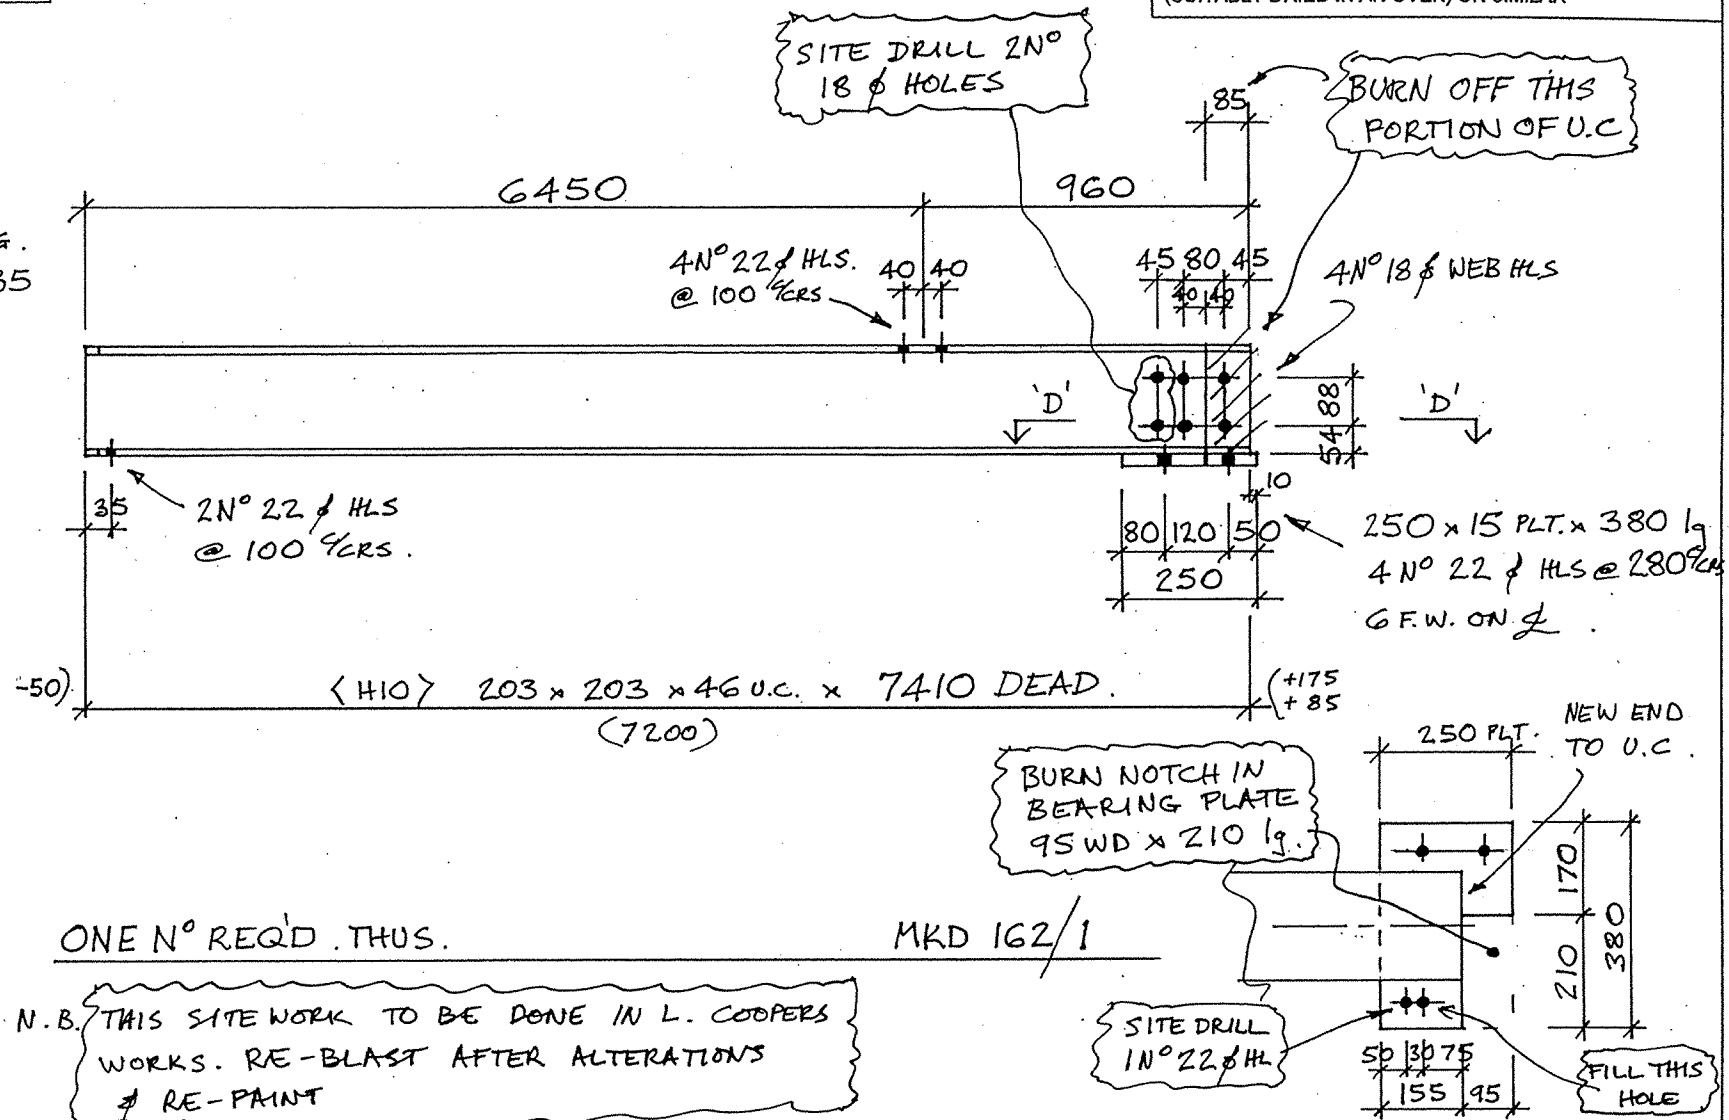 SITE DRILL 2Nº
18 ϕ HOLES
85
BURN OFF THIS
PORTION OF U.C
6450
960
35
4Nº 22 ϕ HLS.
@ 100 c/CRS
40 40
45 80 45
40 40
4Nº 18 ϕ WEB HLS
'D'
88
54
'D'
35
2Nº 22 ϕ HLS
@ 100 c/CRS.
10
80 120 50
250
250 x 15 PLT. x 380 lg
4 Nº 22 ϕ HLS @ 280 c/CRS
6 F.W. ON ℄.
-50)
<H10> 203 x 203 x 46 U.C. x 7410 DEAD.
(7200)
(+175
+ 85
250 PLT.
NEW END
TO U.C.
BURN NOTCH IN
BEARING PLATE
95 WD x 210 lg.
170
210
380
ONE Nº REQ'D. THUS.
MKD 162/1
N.B. THIS SITE WORK TO BE DONE IN L. COOPERS
WORKS. RE-BLAST AFTER ALTERATIONS
& RE-PAINT
SITE DRILL
1Nº 22 ϕ HL
50 30 75
155 95
FILL THIS
HOLE